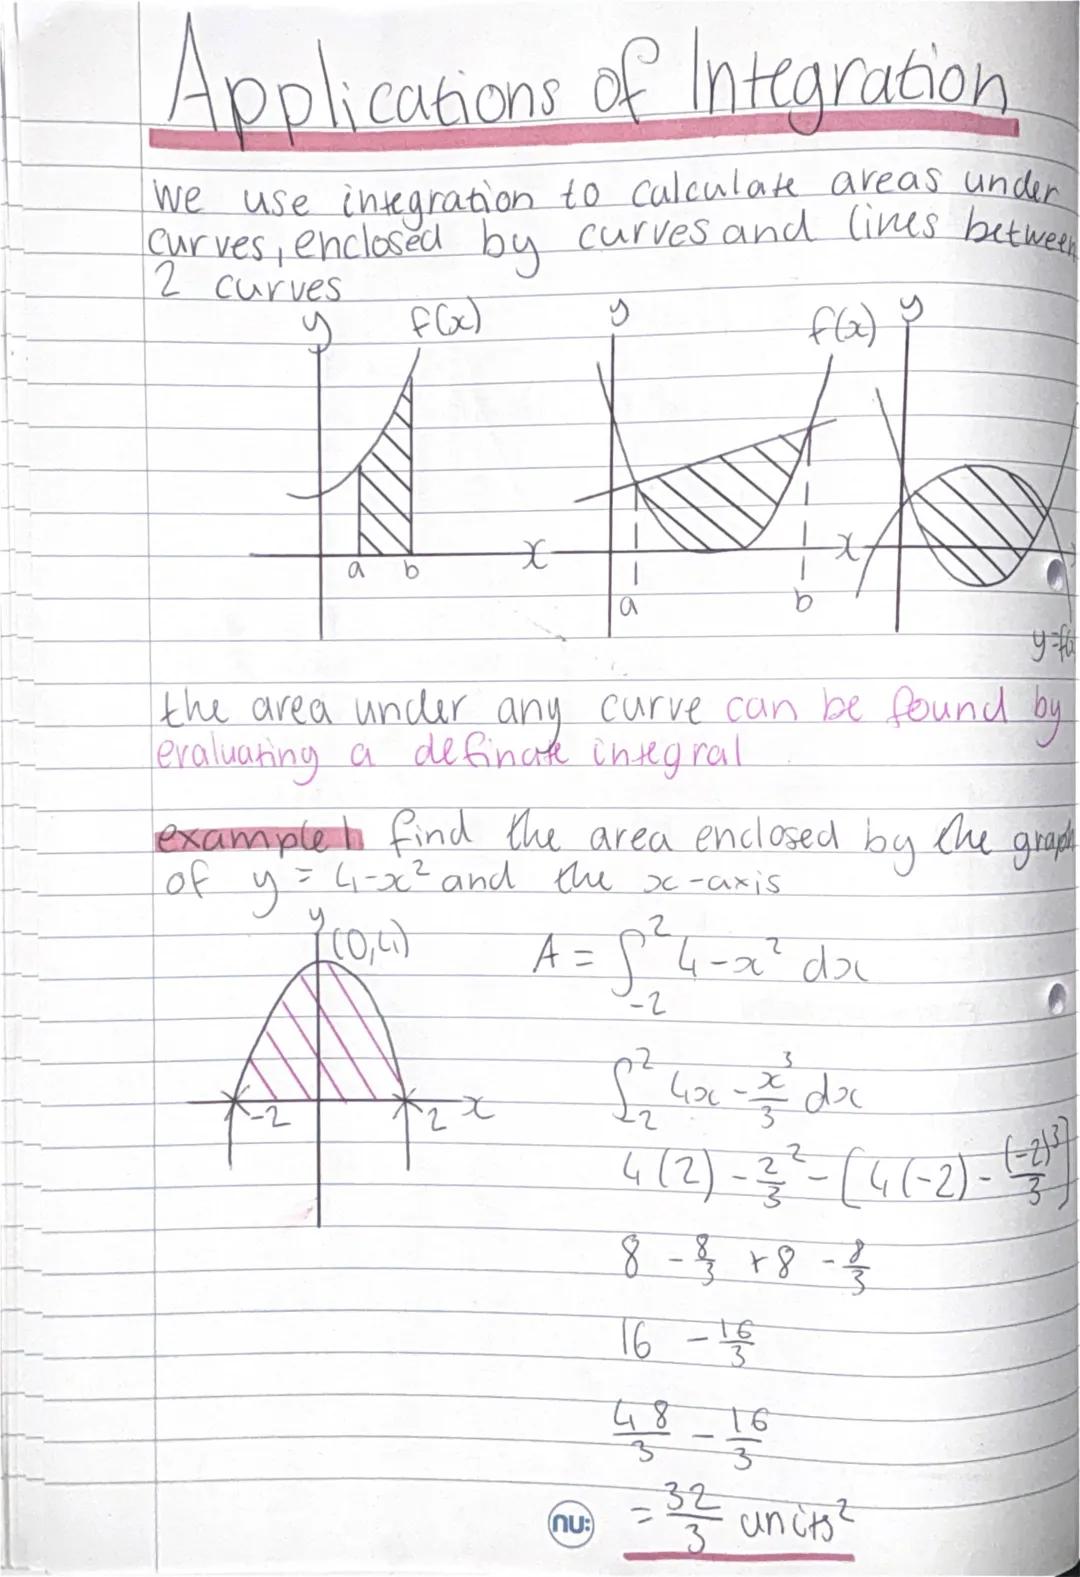 Applications of Integration
we use integration to calculate areas under
curves, enclosed by curves and lines between
2 curves
y f(x) y f(x) y
x x
a b a b
y=f(
the area under any curve can be found by
evaluating a definate integral
example 1 find the area enclosed by the graph
of y = 4-x² and the x-axis
y (0,4)
A = ∫²₋₂ 4-x² dx
-2 2 x
∫²₋₂ 4x - x³/3 dx
4(2) - 2²/3 - [4(-2) - (-2)³/3]
8 - 8/3 + 8 - 8/3
16 - 16/3
48/3 - 16/3
nu: = 32/3 units²